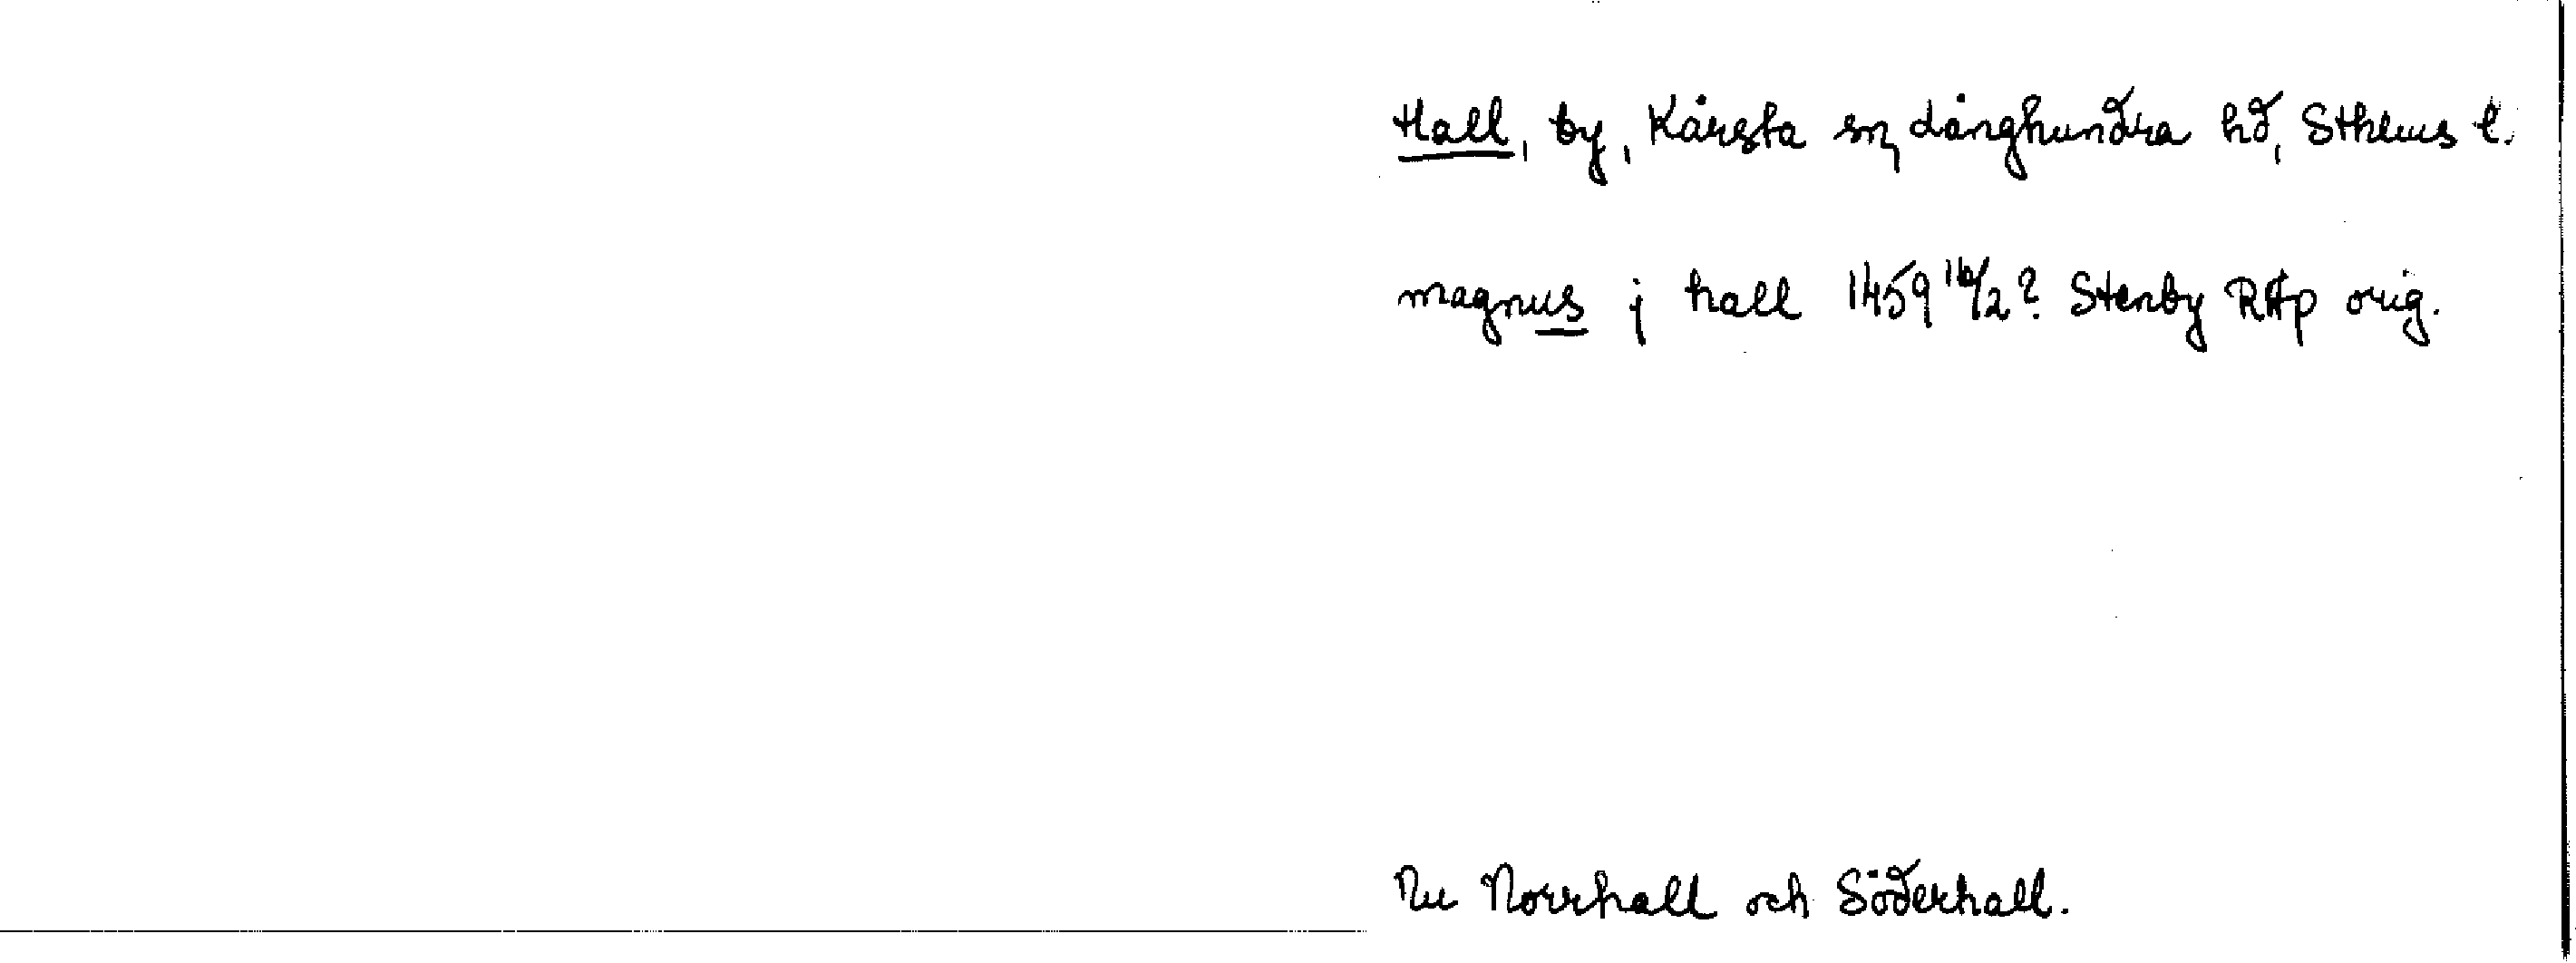 Hall, by, Kårsta sn, Långhundra hd, Sthlms l.
magnus j hall 1459 16/2? Stenby RAp orig.
Nu Norrhall och Söderhall.